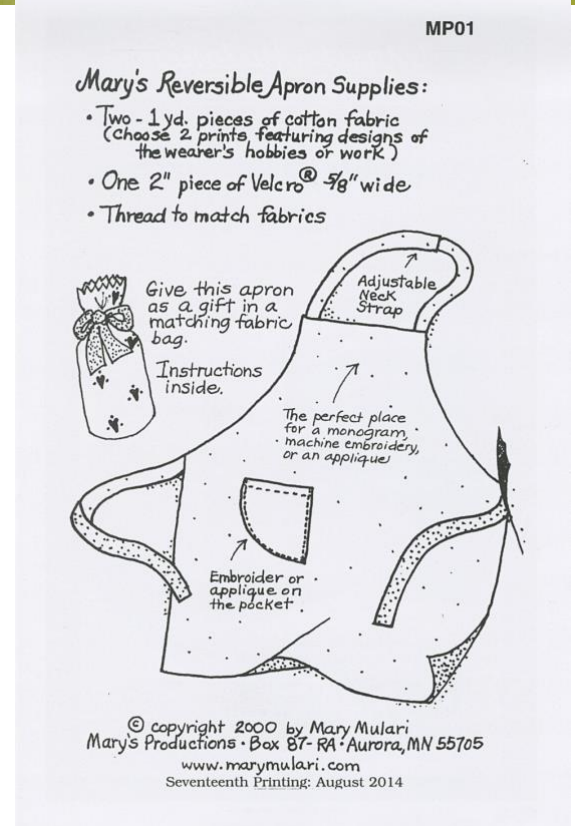 MP01
Mary's Reversible Apron Supplies:
• Two - 1 yd. pieces of cotton fabric
(choose 2 prints featuring designs of
the wearer's hobbies or work)
• One 2" piece of Velcro® 5/8" wide
• Thread to match fabrics
Give this apron
as a gift in a
matching fabric
bag.
Instructions
inside.
Adjustable
Neck
Strap
The perfect place
for a monogram,
machine embroidery,
or an applique
Embroider or
applique on
the pocket.
© copyright 2000 by Mary Mulari
Mary's Productions • Box 87-RA • Aurora, MN 55705
www.marymulari.com
Seventeenth Printing: August 2014